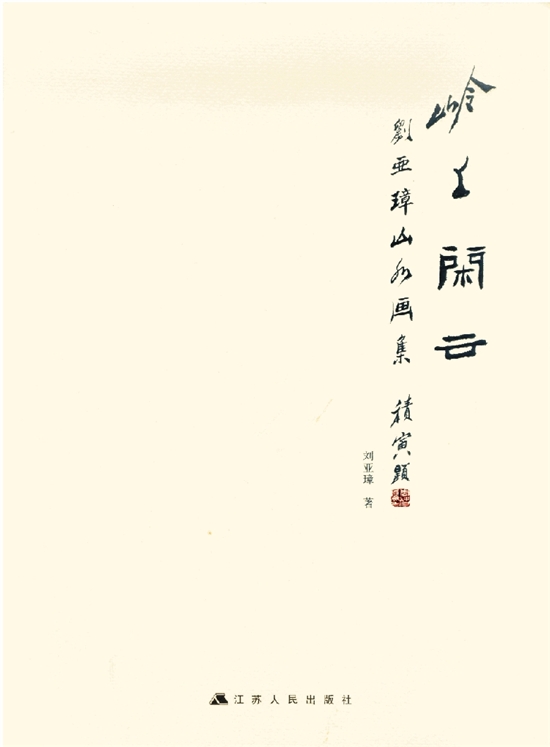 岭上閑云
劉亚璋山水画集 積寅題
刘亚璋 著
江苏人民出版社